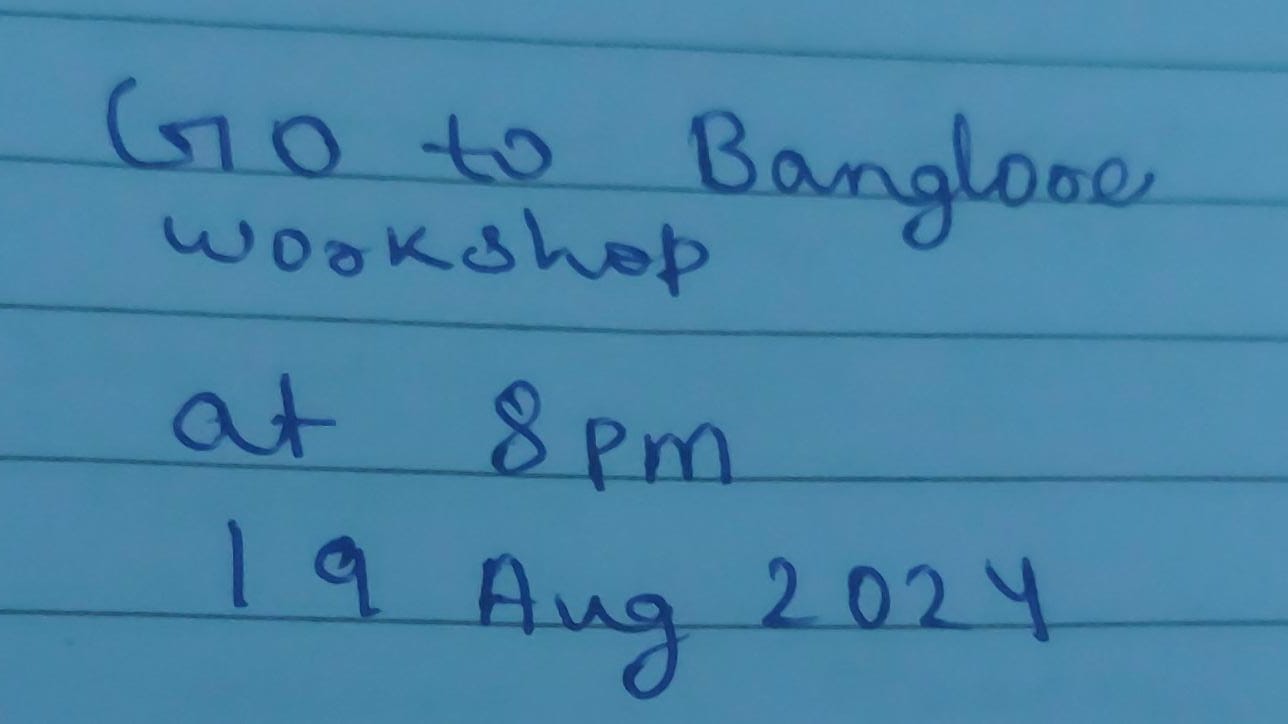 Go to Banglore
workshop
at 8 pm
19 Aug 2024